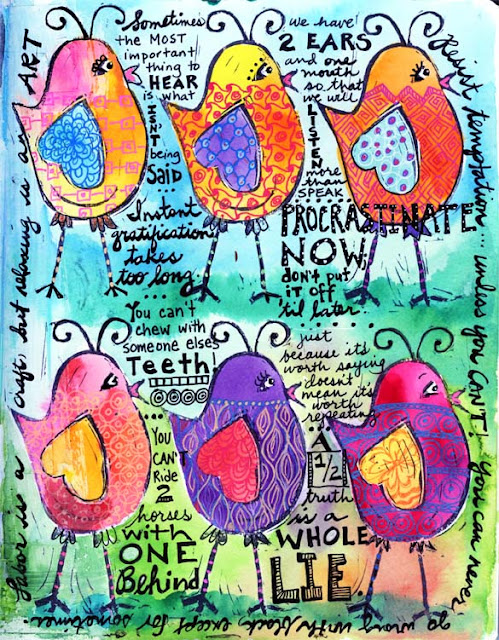 Sometimes
the MOST
important
thing to
HEAR
is what
ISN'T
being
SAID...
we have
2 EARS
and one
mouth
so that
we will
LISTEN
more
than we
SPEAK
Instant
gratification
takes
too long.
PROCRASTINATE
NOW,
don't put
IT OFF
'til later.
You can't
chew with
someone else's
Teeth!
just
because it's
worth saying
doesn't
mean it's
worth
repeating.
...YOU
CAN'T
Ride
2
horses
with
ONE
Behind
A
1/2
truth
is a
WHOLE
LIE.
Labor is a craft, but relaxing is an ART
Resist temptation... unless you CAN'T! You can never
go wrong with black, except for sometimes.